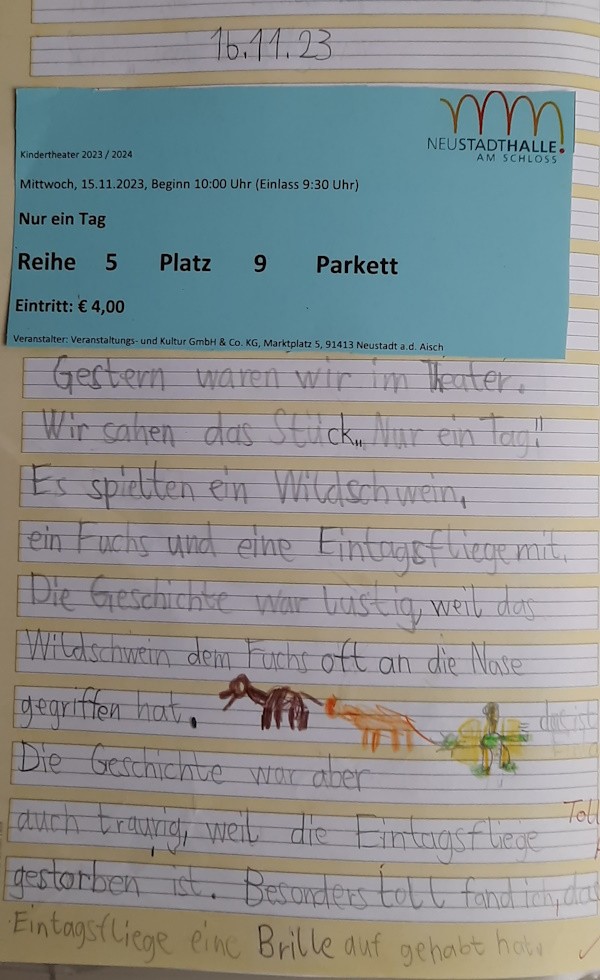 16.11.23
NEUSTADTHALLE
AM SCHLOSS
Kindertheater 2023 / 2024
Mittwoch, 15.11.2023, Beginn 10:00 Uhr (Einlass 9:30 Uhr)
Nur ein Tag
Reihe 5 Platz 9 Parkett
Eintritt: € 4,00
Veranstalter: Veranstaltungs- und Kultur GmbH & Co. KG, Marktplatz 5, 91413 Neustadt a.d. Aisch
Gestern waren wir im Theater.
Wir sahen das Stück „Nur ein Tag!"
Es spielten ein Wildschwein,
ein Fuchs und eine Eintagsfliege mit.
Die Geschichte war lustig, weil das
Wildschwein dem Fuchs oft an die Nase
gegriffen hat. das ist
Die Geschichte war aber
auch traurig, weil die Eintagsfliege
Toll
gestorben ist. Besonders toll fand ich, das
Eintagsfliege eine Brille auf gehabt hat.